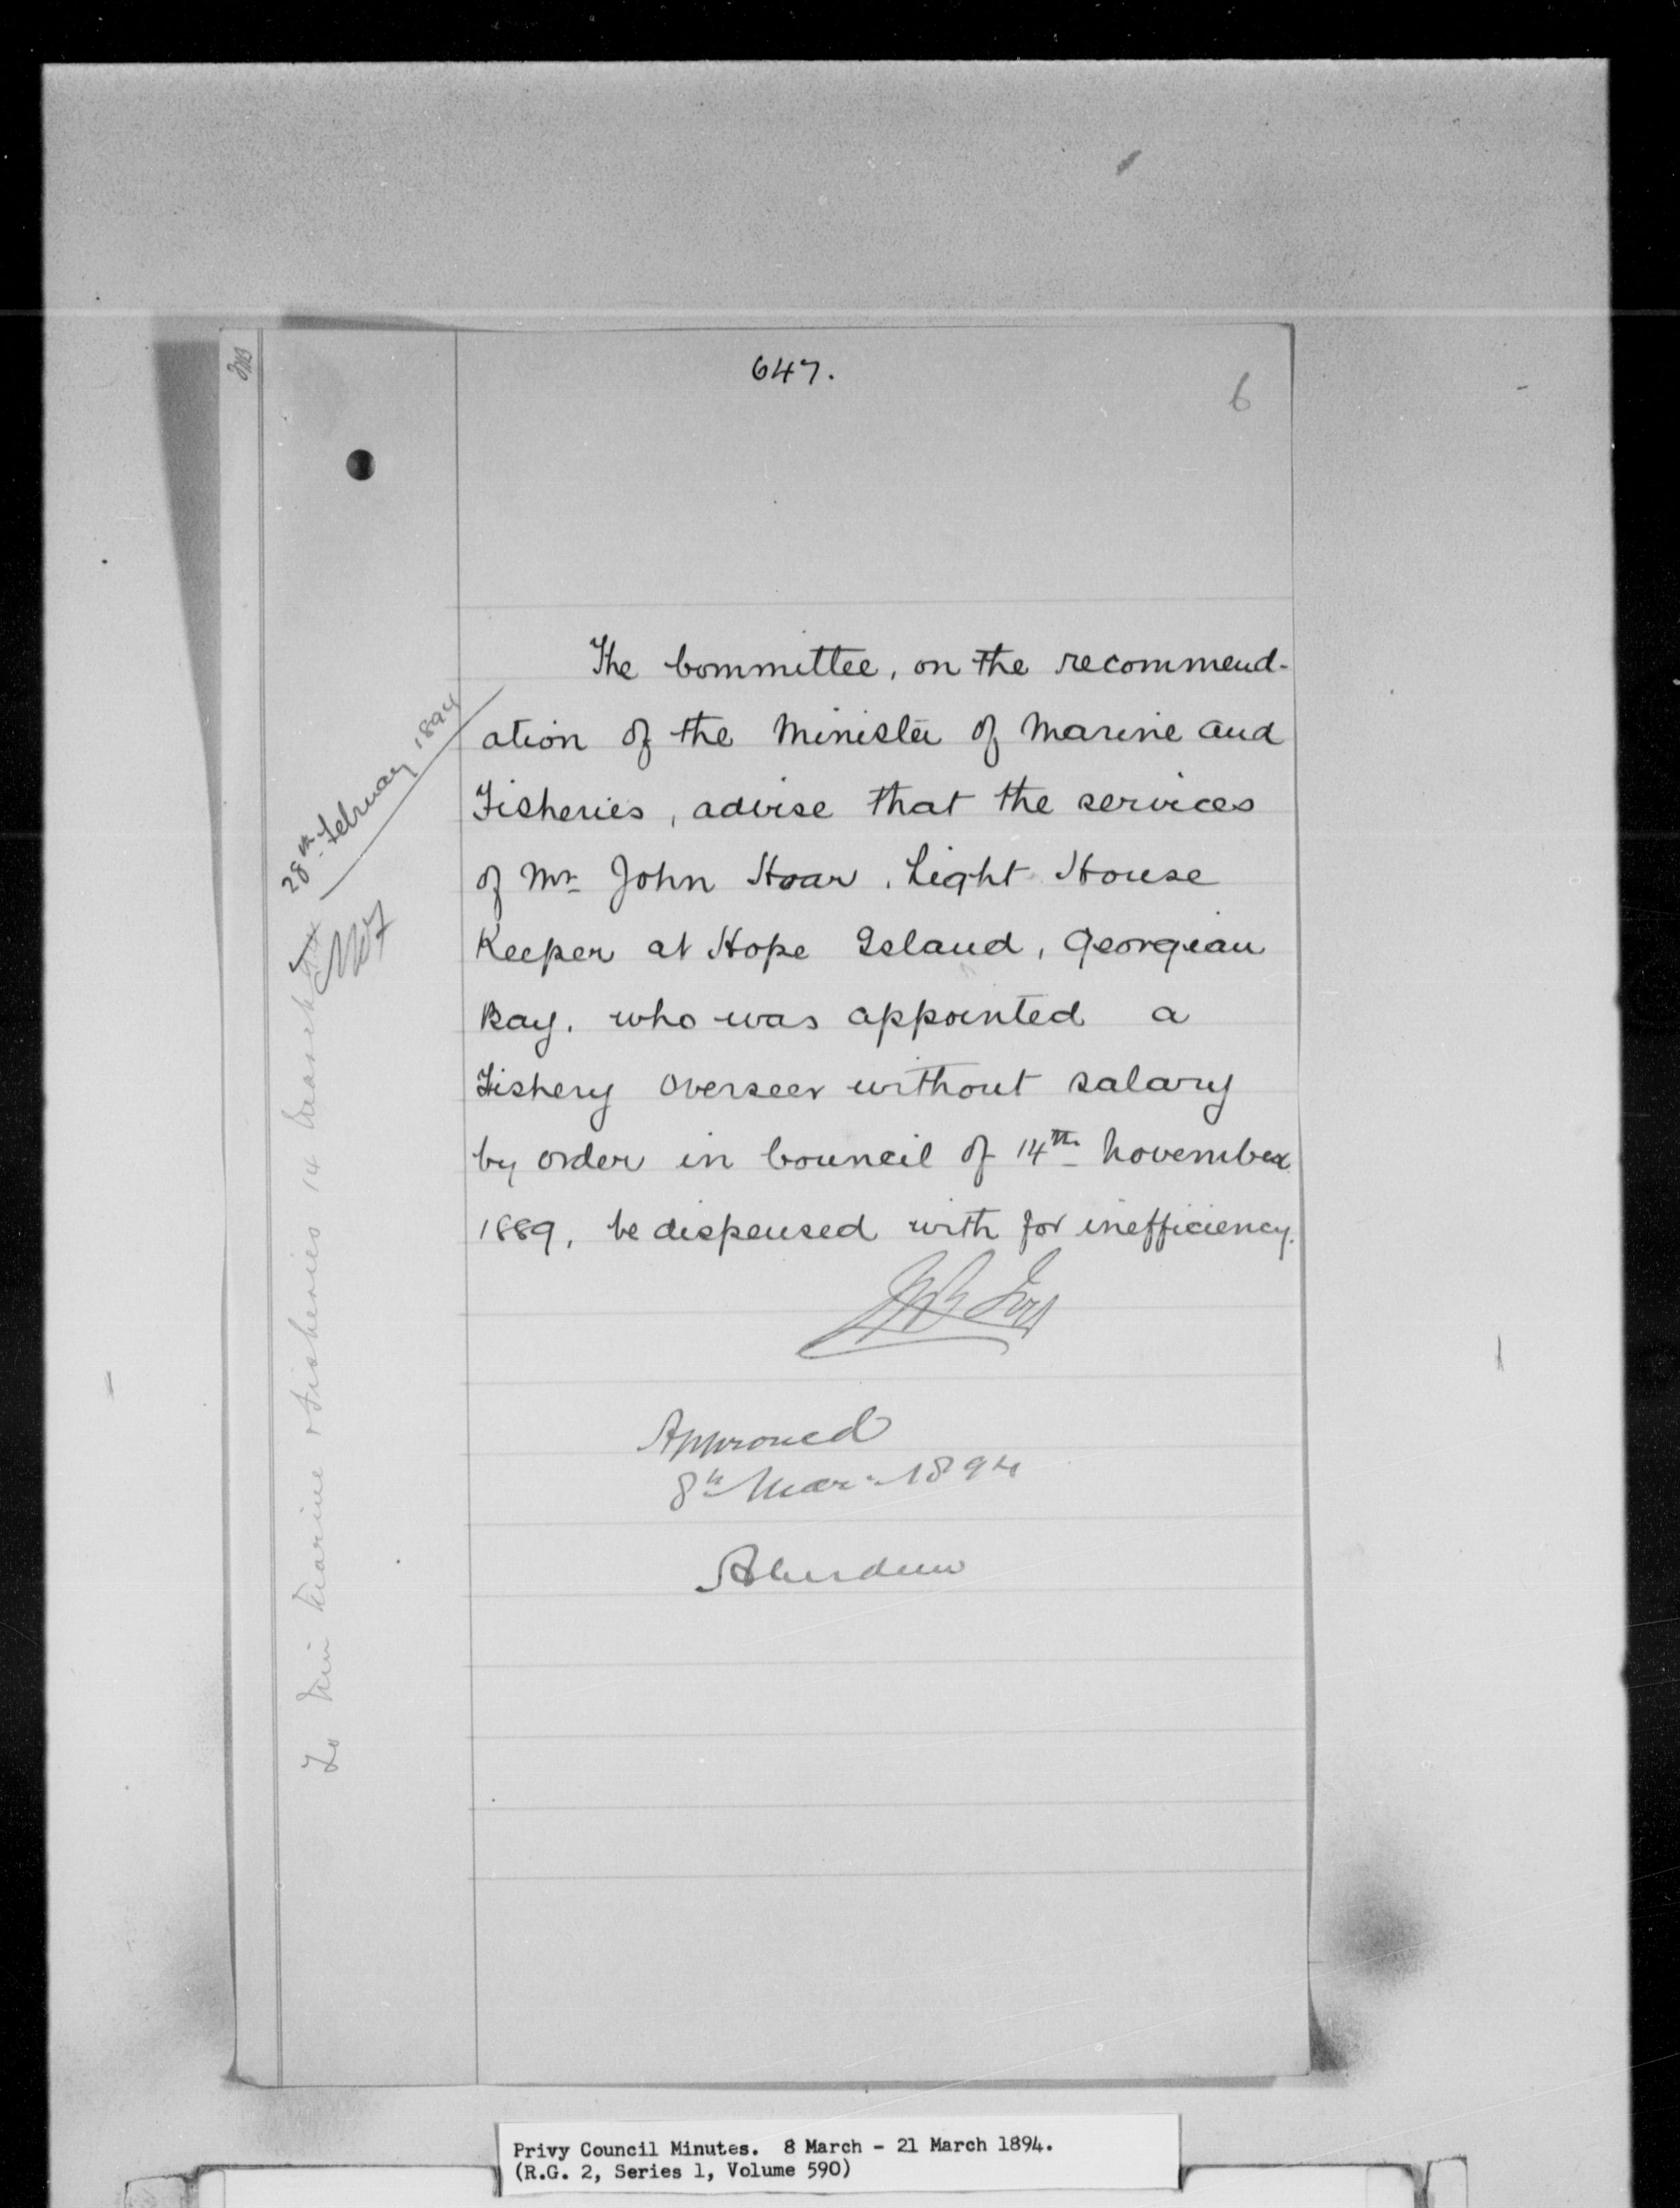 647.
6
28th February 1894
The Committee, on the recommend-
ation of the Minister of Marine and
Fisheries, advise that the services
of Mr John Hoar, Light House
Keeper at Hope Island, Georgian
Bay, who was appointed a
Fishery Overseer without salary
by order in Council of 14th November
1889, be dispensed with for inefficiency.
Approved
8th Mar. 1894
Aberdeen
To Min Marine & Fisheries 14 March
Privy Council Minutes. 8 March - 21 March 1894.
(R.G. 2, Series 1, Volume 590)